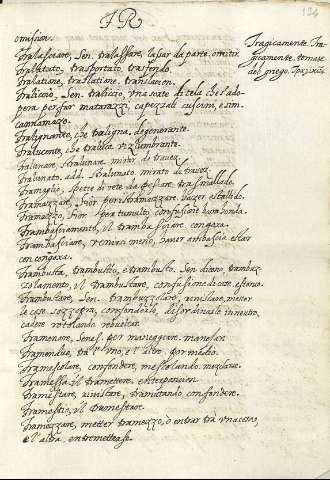 TR
124
omision.
Tralasciare, Sen. trallassare, lasar da parte. omitir
Tralattato, trasportato. trasferido
Tralatione, traslatione. translacion.
Traliccio, Sen. traliccio, una sorte di tela che s'ado-
pera per far matarazzi, capezzali cuscini, e sim.
cannamazo.
Tralignante, che traligna, degenerante.
Tralucente, che traluce
Tralunare, stralunare. mirar de traves.
Tralunato, add. stralunato. mirato de traves.
Tramaglio, spetie di rete da pescare. trasmallado.
Tramazzare, Fior. per stramazzare.
Tramazzo, Fior. tumulto, confusione
Trambasciamento, il trambasciare. congoxa.
Trambasciare, venirsi meno, haver ambascia estar
con congoxa.
Trambusta, trambustio, e trambusto. Sen. dicono, trambuz-
zolamento, il trambustare, confusione di cose
Trambustare, Sen. trambuzzolare, rovistare, metter
le cose sozzopra, confondendole, disordinarle
rotolando reboltar.
Tramenare, Senes. per maneggiare. manosear
Tramendue, tra l'uno, e l'altro. por medio.
Tramescolare, confondere, mescolando. mezclar.
Tramessa, il tramettere. entreposicion
Tramestare, rovistare, tramutando confondere.
Tramestio, il tramestare.
Tramezzare, metter tramezzo, o entrar tra una cosa,
e l'altra. entremeterse.
Tragicamente. Tra-
gicamente. tomase
del griego.